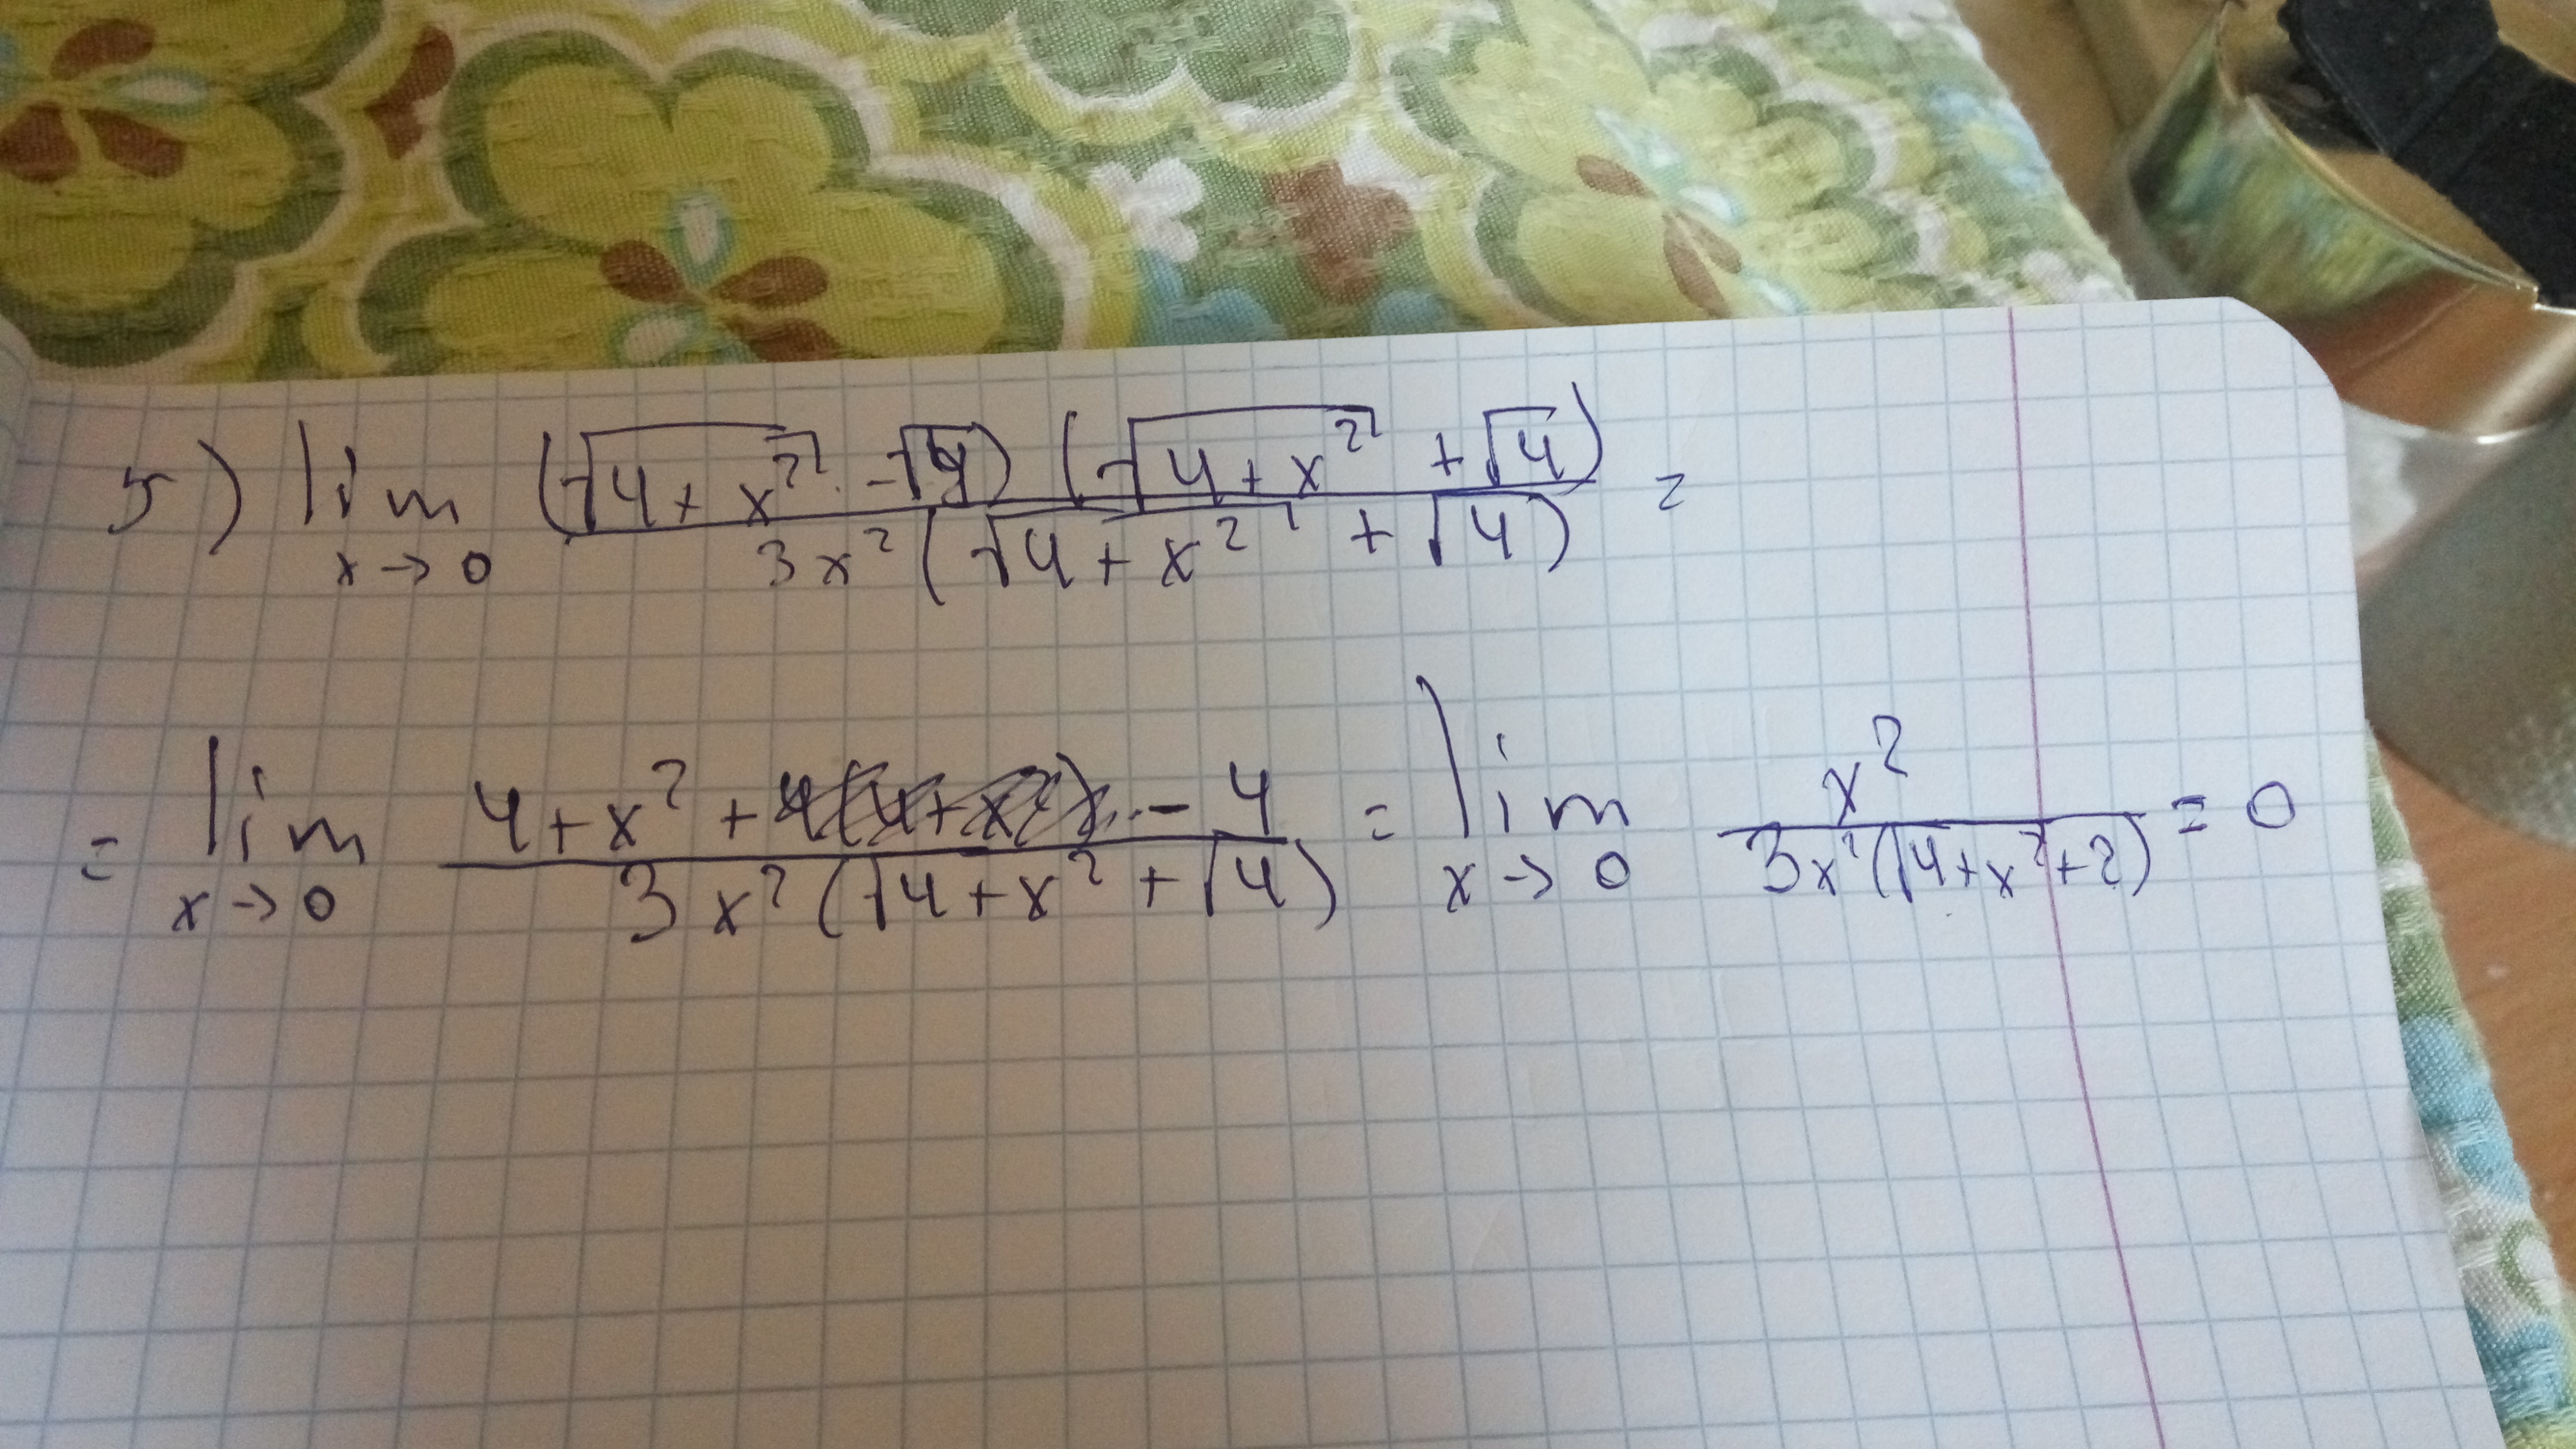 5) lim x→0 (√(4+x²) - √4) (√(4+x²) + √4) / 3x² (√(4+x²) + √4) =
= lim x→0 4+x² + - 4 / 3x² (√4+x² + √4) = lim x→0 x² / 3x² (√4+x² + 2) = 0